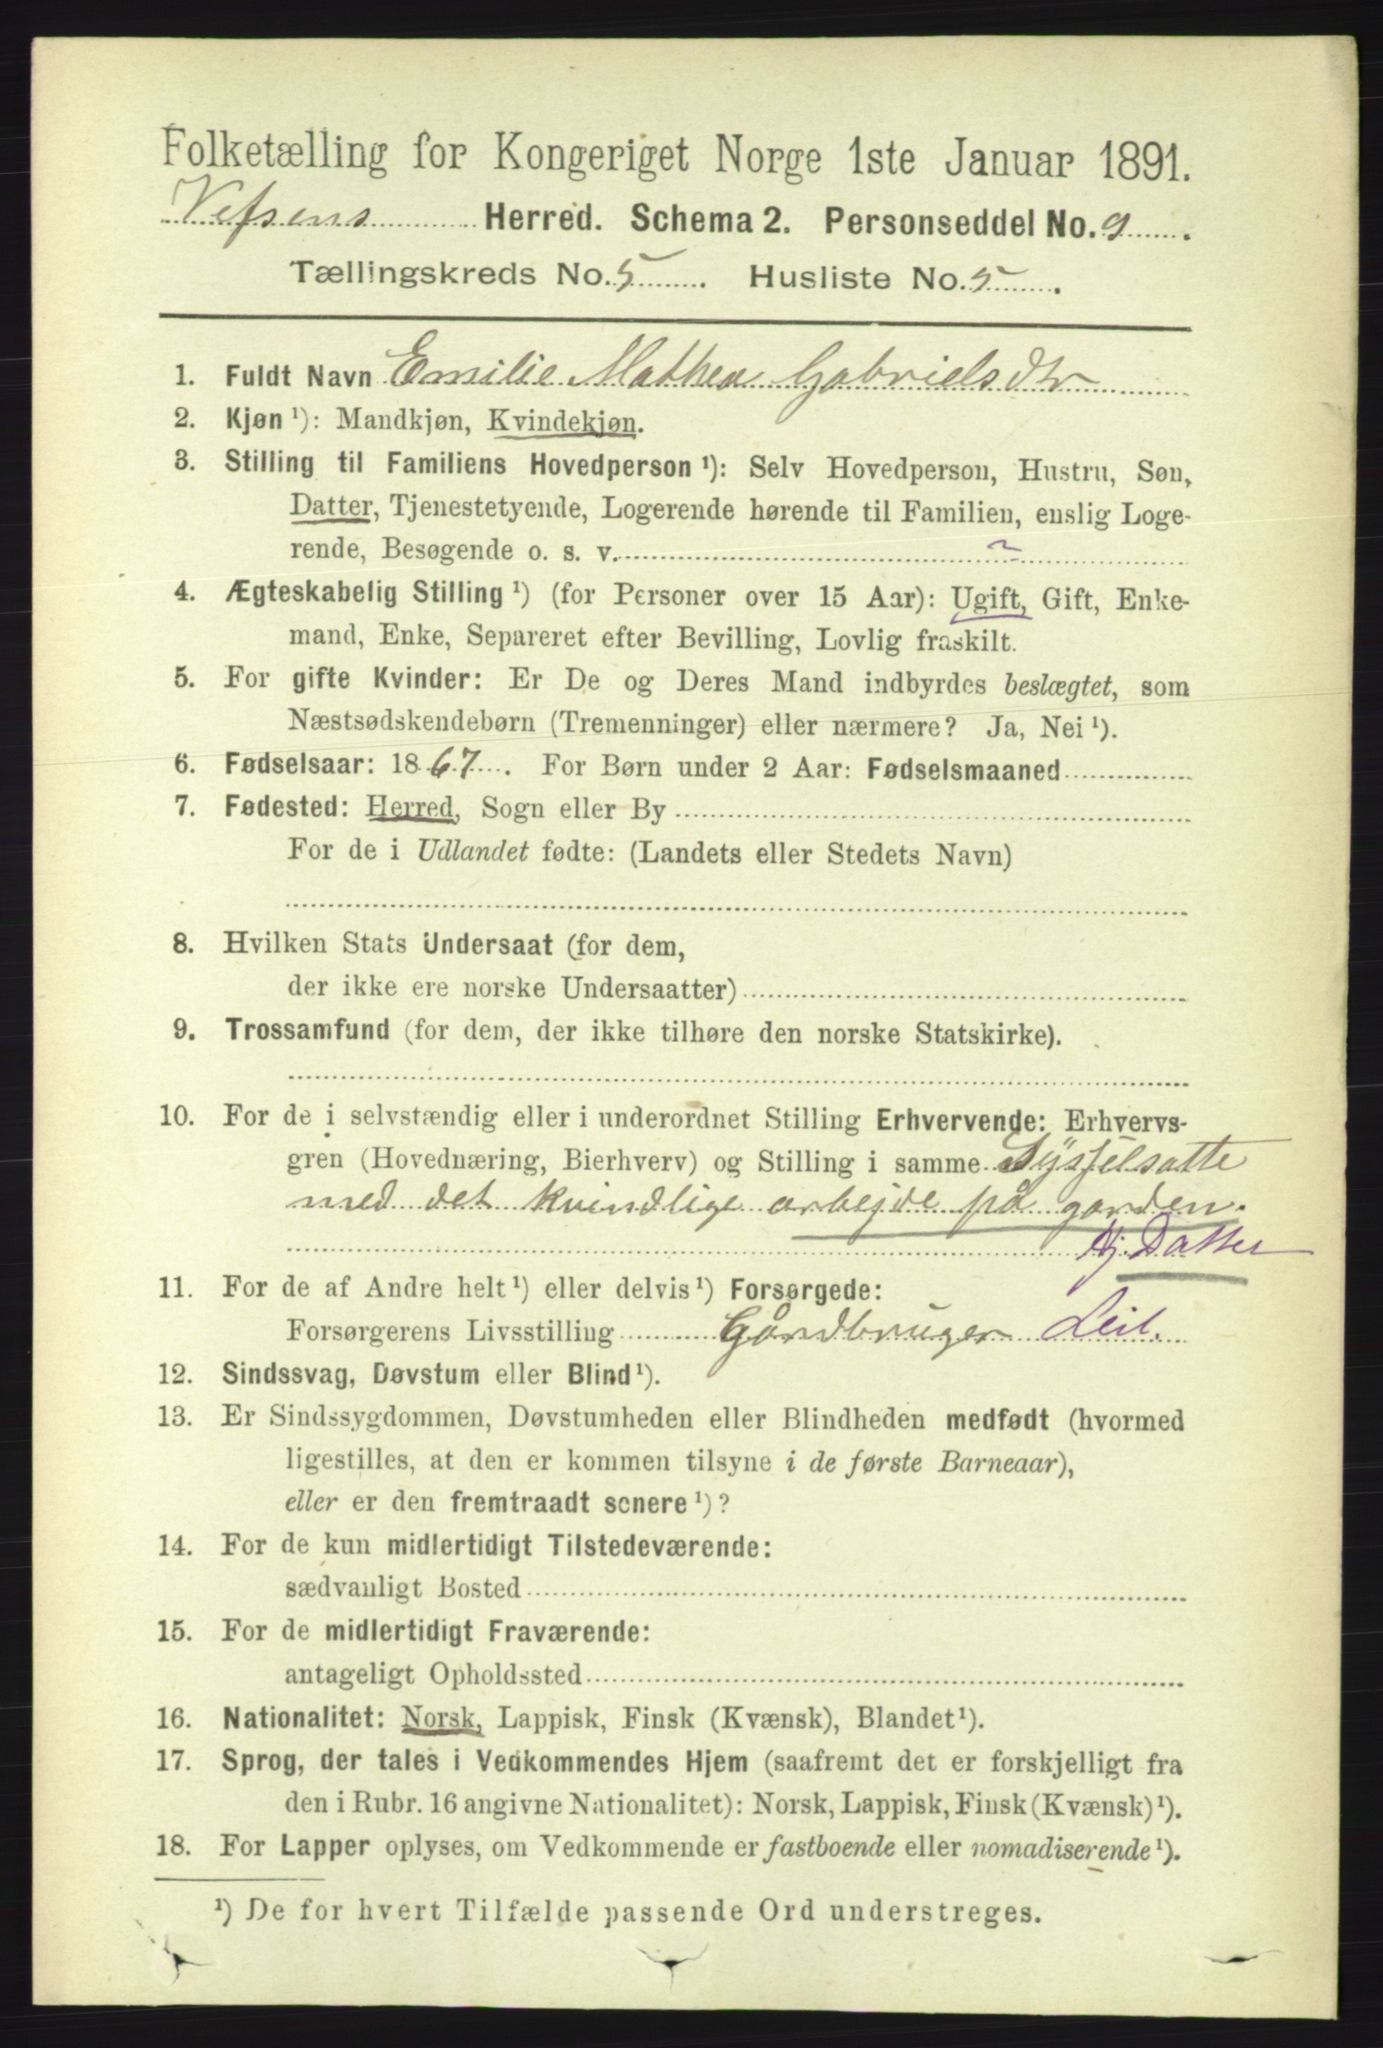 Folketælling for Kongeriget Norge 1ste Januar 1891.
Vefsens Herred. Schema 2. Personseddel No. 9.
Tællingskreds No. 5. Husliste No. 5.
1. Fuldt Navn Emilie Mathea Gabrielsdtr
2. Kjøn ¹): Mandkjøn, Kvindekjøn.
3. Stilling til Familiens Hovedperson ¹): Selv Hovedperson, Hustru, Søn,
Datter, Tjenestetyende, Logerende hørende til Familien, enslig Loge-
rende, Besøgende o. s. v.
4. Ægteskabelig Stilling ¹) (for Personer over 15 Aar): Ugift, Gift, Enke-
mand, Enke, Separeret efter Bevilling, Lovlig fraskilt.
5. For gifte Kvinder: Er De og Deres Mand indbyrdes beslægtet, som
Næstsødskendebørn (Tremenninger) eller nærmere? Ja, Nei ¹).
6. Fødselsaar: 1867. For Børn under 2 Aar: Fødselsmaaned
7. Fødested: Herred, Sogn eller By
For de i Udlandet fødte: (Landets eller Stedets Navn)
8. Hvilken Stats Undersaat (for dem,
der ikke ere norske Undersaatter)
9. Trossamfund (for dem, der ikke tilhøre den norske Statskirke).
10. For de i selvstændig eller i underordnet Stilling Erhvervende: Erhvervs-
gren (Hovednæring, Bierhverv) og Stilling i samme Sysselsatte
med det kvindlige arbejde på garden.
Hj. Datter
11. For de af Andre helt ¹) eller delvis ¹) Forsørgede:
Forsørgerens Livsstilling Gårdbruger Leil.
12. Sindssvag, Døvstum eller Blind ¹).
13. Er Sindssygdommen, Døvstumheden eller Blindheden medfødt (hvormed
ligestilles, at den er kommen tilsyne i de første Barneaar),
eller er den fremtraadt senere ¹)?
14. For de kun midlertidigt Tilstedeværende:
sædvanligt Bosted
15. For de midlertidigt Fraværende:
antageligt Opholdssted
16. Nationalitet: Norsk, Lappisk, Finsk (Kvænsk), Blandet ¹).
17. Sprog, der tales i Vedkommendes Hjem (saafremt det er forskjelligt fra
den i Rubr. 16 angivne Nationalitet): Norsk, Lappisk, Finsk (Kvænsk) ¹).
18. For Lapper oplyses, om Vedkommende er fastboende eller nomadiserende ¹).
¹) De for hvert Tilfælde passende Ord understreges.